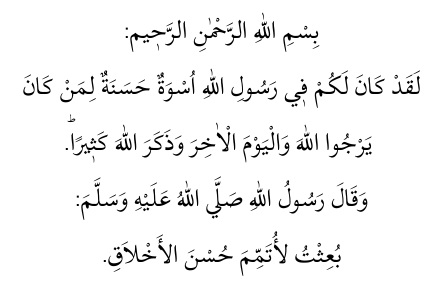 بِسْمِ اللهِ الرَّحْمٰنِ الرَّحٖيمِ:
لَقَدْ كَانَ لَكُمْ فٖي رَسُولِ اللهِ اُسْوَةٌ حَسَنَةٌ لِمَنْ كَانَ
يَرْجُوا اللهَ وَالْيَوْمَ الْاٰخِرَ وَذَكَرَ اللهَ كَثٖيرًاؕ.
وَقَالَ رَسُولُ اللهِ صَلَّي اللهُ عَلَيْهِ وَسَلَّمَ:
بُعِثْتُ لأُتَمِّمَ حُسْنَ الأَخْلاَقِ.